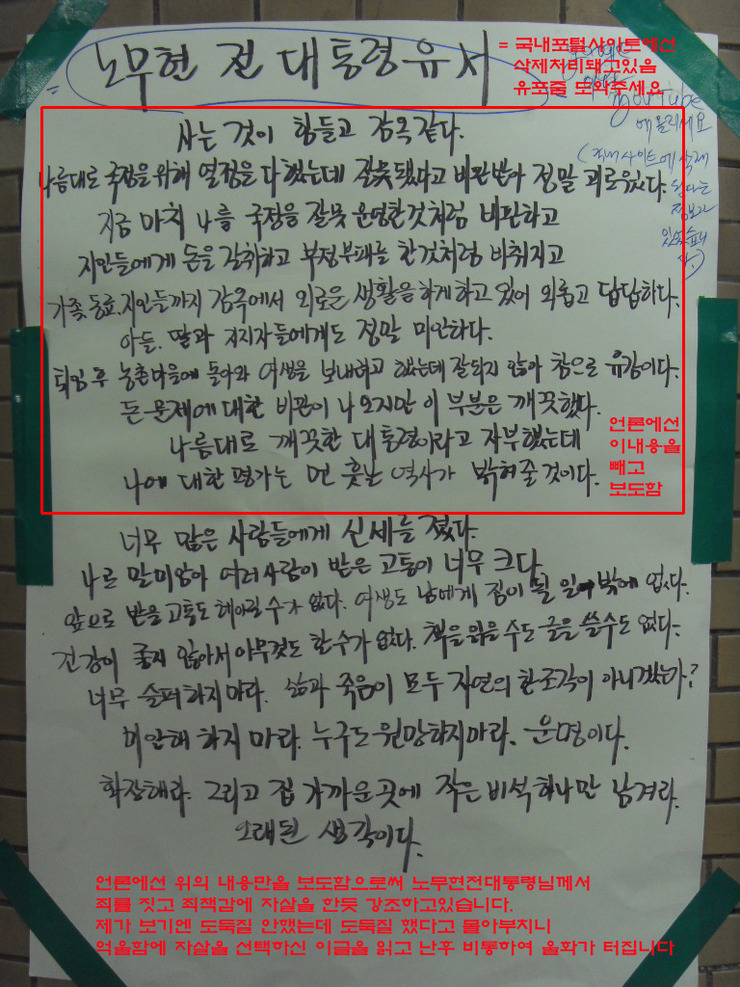 노무현 전 대통령 유서
= 국내포털사이트에선
삭제처리돼고있음
유포좀 도와주세요
YouTube
에 올리세요
(국내 사이트에 삭제
된다는
정보가
있었습니
다.)
사는 것이 힘들고 감옥같다.
나름대로 국정을 위해 열정을 다 했는데 잘못됐다고 비판받아 정말 괴로웠다.
지금 마치 나를 국정을 잘못 운영한것처럼 비판하고
지인들에게 돈을 갈취하고 부정부패를 한것처럼 비춰지고
가족, 동료, 지인들까지 감옥에서 외로운 생활을 하게 하고 있어 외롭고 답답하다.
아들, 딸과 지지자들에게도 정말 미안하다.
퇴임 후 농촌마을에 돌아와 여생을 보내려고 했는데 잘되지 않아 참으로 유감이다.
돈 문제에 대한 비판이 나오지만 이 부분은 깨끗했다.
나름대로 깨끗한 대통령이라고 자부했는데
나에 대한 평가는 먼 훗날 역사가 밝혀줄 것이다.
언론에선
이내용을
빼고
보도함
너무 많은 사람들에게 신세를 졌다.
나로 말미암아 여러사람이 받은 고통이 너무 크다.
앞으로 받을 고통도 헤아릴 수가 없다. 여생도 남에게 짐이 될 일 밖에 없다.
건강이 좋지 않아서 아무것도 할 수가 없다. 책을 읽을 수도 글을 쓸 수도 없다.
너무 슬퍼하지 마라. 삶과 죽음이 모두 자연의 한 조각이 아니겠는가?
미안해 하지 마라. 누구도 원망하지 마라. 운명이다.
화장해라. 그리고 집 가까운 곳에 작은 비석 하나만 남겨라.
오래된 생각이다.
언론에선 위의 내용만을 보도함으로써 노무현전대통령님께서
죄를 짓고 죄책감에 자살을 한듯 강조하고있습니다.
제가 보기엔 도둑질 안했는데 도둑질 했다고 몰아부치니
억울함에 자살을 선택하신 이글을 읽고 난후 비통하여 울화가 터집니다